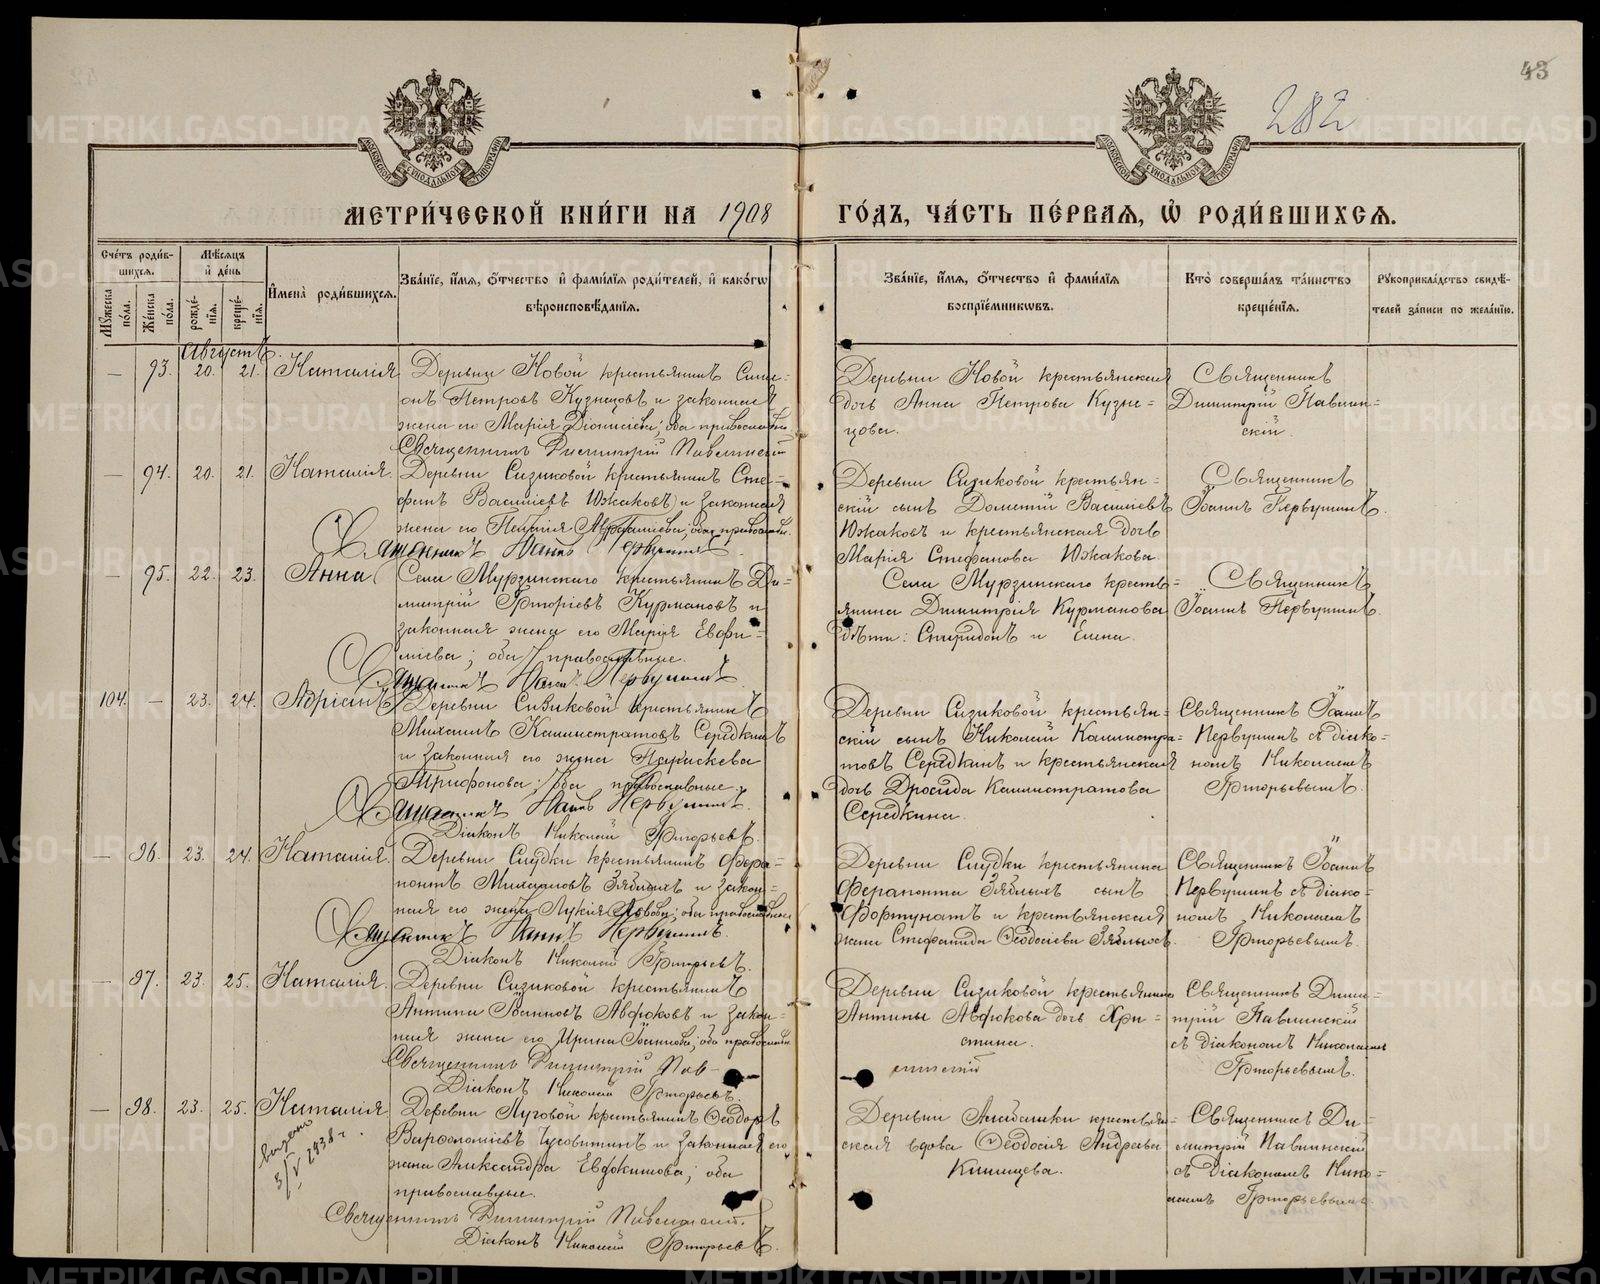 43
282
МОСКОВСКОЙ СѴНОДАЛЬНОЙ ТИПОГРАФІИ
МОСКОВСКОЙ СѴНОДАЛЬНОЙ ТИПОГРАФІИ
МЕТРИ́ЧЕСКОЙ КНИ́ГИ НА 1908
ГО́ДЪ, ЧА́СТЬ ПЕ́РВАѦ, Ѡ҆ РОДИ́ВШИХСѦ.
Сче́тъ роди́в-
шихсѧ.
Мꙋ́жеска по́ла.
Же́нска по́ла.
Мѣ́сѧцъ
и҆ де́нь
рожде́-
нїѧ.
креще́-
нїѧ.
И҆мена̀ роди́вшихсѧ.
Зва́нїе, и҆́мѧ, ѻ҆́тчество и҆ фами́лїѧ роди́телей, и҆ како́гѡ
вѣроисповѣ́данїѧ.
Зва́нїе, и҆́мѧ, ѻ҆́тчество и҆ фами́лїѧ
воспрїе́мникѡвъ.
Кто̀ соверша́лъ та́инство
креще́нїѧ.
Рꙋкоприкла́дство свидѣ́-
телей за́писи по жела́нїю.
Августъ.
— 93. 20. 21. Наталія
Деревни Новой крестьянинъ Симе-
онъ Петровъ Кузнецовъ и законная
жена его Марія Діонисіева; оба православн.
Священникъ Димитрій Павлинскій
Деревни Новой крестьянская
дочь Анна Петрова Кузне-
цова.
Священникъ
Димитрій Павлин-
скій.
— 94. 20. 21. Наталія.
Деревни Сизиковой крестьянинъ Сте-
фанъ Василіевъ Южаковъ и законная
жена его
оба православн.
Священникъ Іоаннъ Первушинъ.
Деревни Сизиковой крестьян-
скій сынъ Дометій Василіевъ
Южаковъ и крестьянская дочь
Марія Стефанова Южакова
Священникъ
Іоаннъ Первушинъ.
— 95. 22. 23. Анна
Села Мурзинскаго крестьянинъ Ди-
митрій Григоріевъ Курмановъ и
законная жена его Марія Евфи-
міева; оба православные.
Священникъ Іоаннъ Первушинъ
Села Мурзинскаго кресть-
янина Димитрія Курманова
дѣти: Спиридонъ и Елена.
Священникъ
Іоаннъ Первушинъ.
104. — 23. 24. Адріанъ
Деревни Сизиковой крестьянинъ
Михаилъ Каллистратовъ Середкинъ
и законная его жена Параскева
Трифонова; оба православные.
Священникъ Іоаннъ Первушинъ.
Діаконъ Николай Григорьевъ.
Деревни Сизиковой крестьян-
скій сынъ Николай Каллистра-
товъ Середкинъ и крестьянская
дочь Дросида Каллистратова
Середкина.
Священникъ Іоаннъ
Первушинъ съ діако-
номъ Николаемъ
Григорьевымъ.
— 96. 23. 24. Наталія.
Деревни Слудки крестьянинъ Фера-
понтъ Михаиловъ Зяблыхъ и закон-
ная его жена Лукія Львова; оба православные
Священникъ Іоаннъ Первушинъ.
Діаконъ Николай Григорьевъ.
Деревни Слудки крестьянина
Ферапонта Зяблыхъ сынъ
Фортунатъ и крестьянская
жена Стефанида Ѳеодосіева Зяблыхъ.
Священникъ Іоаннъ
Первушинъ съ діако-
номъ Николаемъ
Григорьевымъ.
— 97. 23. 25. Наталія.
Деревни Сизиковой крестьянинъ
Антипа Іоанновъ Авфюковъ и закон-
ная жена его Ирина Іоаннова; оба православн.
Священникъ Димитрій Пав-
Діаконъ Николай Григорьевъ.
Деревни Сизиковой крестьянина
Антипы Авфюкова дочь Хри-
стина.
линскій
Священникъ Дими-
трій Павлинскій
съ діакономъ Николаемъ
Григорьевымъ.
— 98. 23. 25. Наталія
выдано
3/V 1938 г.
Деревни Луговой крестьянинъ Ѳеодоръ
Варѳоломіевъ Чусовитинъ и законная его
жена Александра Евдокимова; оба
православные.
Священникъ Димитрій Павлинскій.
Діаконъ Николай Григорьевъ.
Деревни крестьян-
ская вдова Ѳеодосія Андреева
Киминцева.
Священникъ Ди-
митрій Павлинскій
съ діакономъ Нико-
лаемъ Григорьевымъ.
METRIKI.GASO-URAL.RU